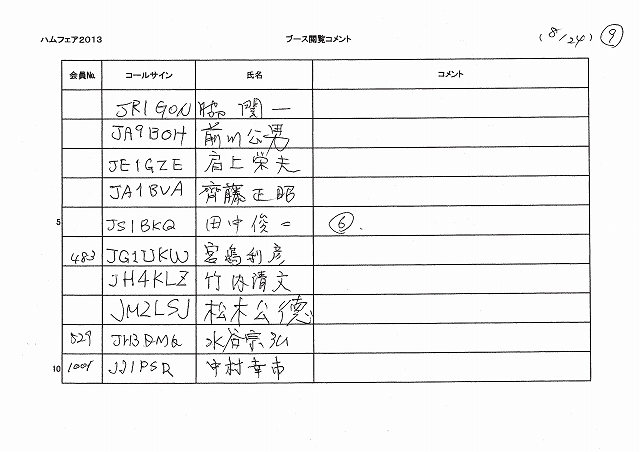 ハムフェア2013 ブース閲覧コメント (8/24) ⑨
会員No. コールサイン 氏名 コメント
JR1GON 脇 関一
JA9BOH 前川公男
JE1GZE 肩上栄夫
JA1BVA 齊藤正昭
5 JS1BKQ 田中俊二 ⑥.
483 JG1UKW 宮嶋利彦
JH4KLZ 竹内清文
JM2LSJ 松木公徳
529 JH3DMQ 水谷宗弘
10 1001 JJ1PSR 中村幸市